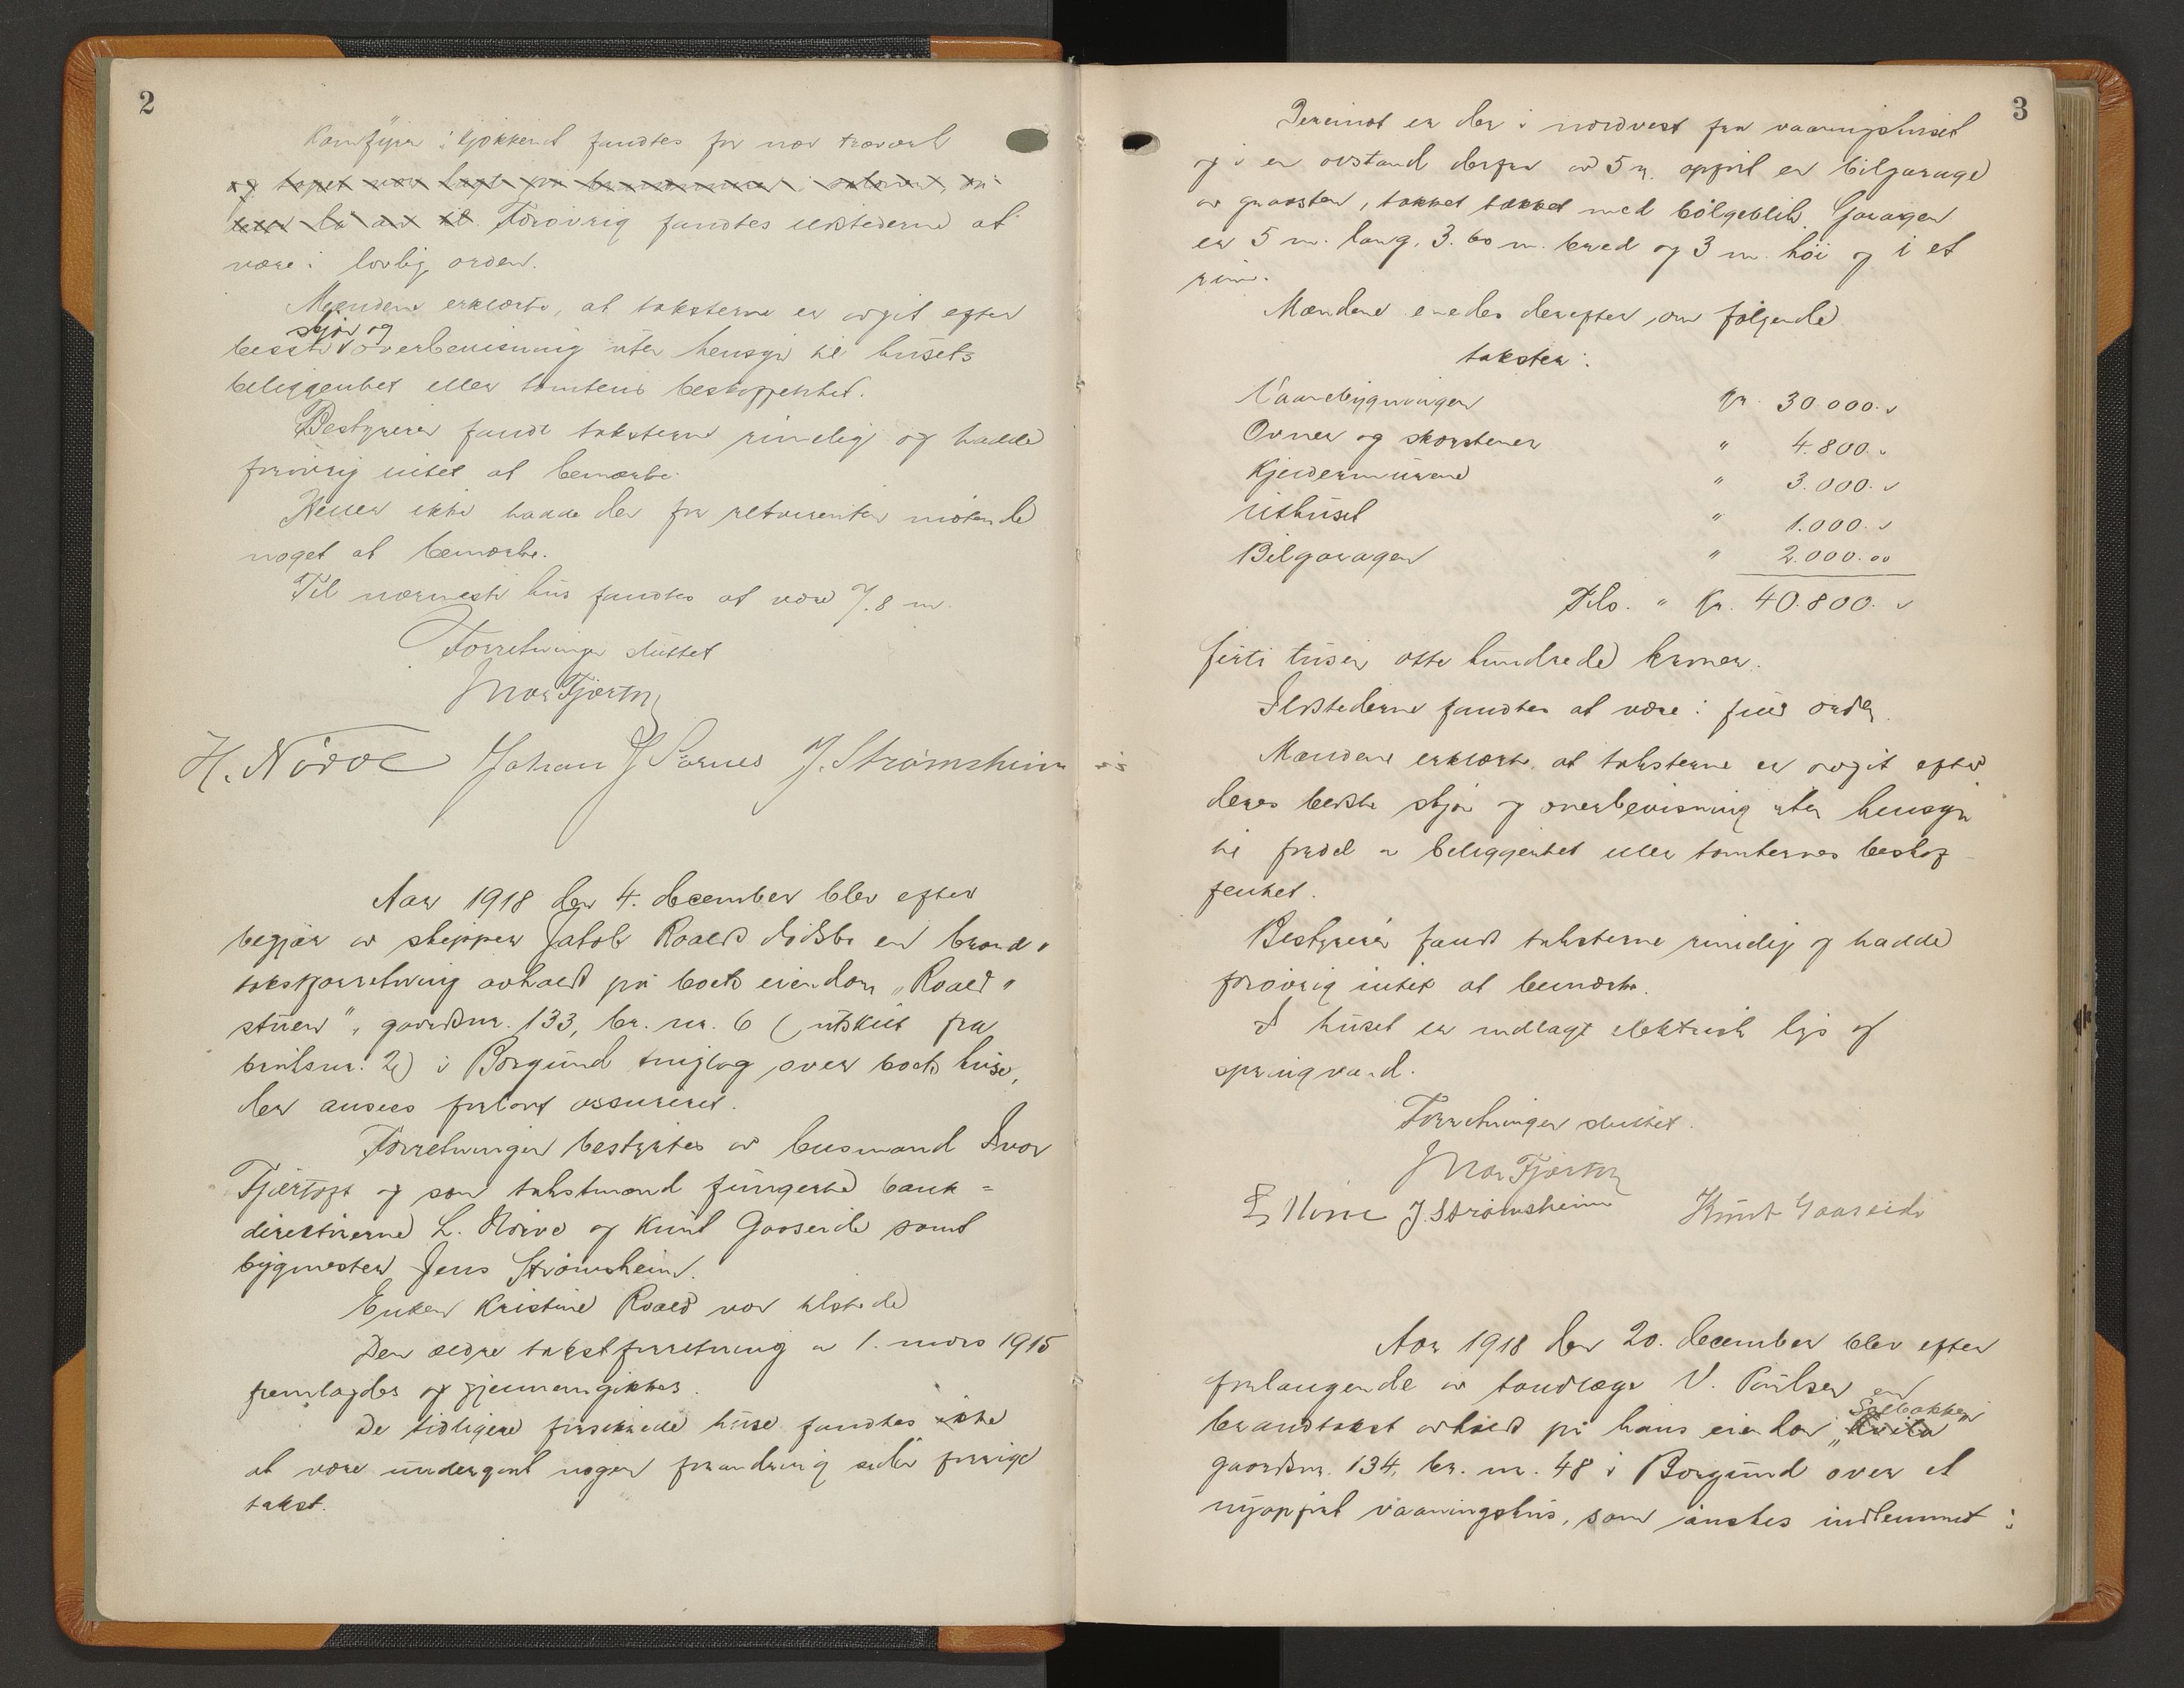 2
Komfyren i kjøkkenet fandtes for nær træverk
og tapet var lagt på brandmuren i
Forøvrig fandtes ildstederne at
være i lovlig orden.
Mændene erklærte, at taksterne er avgit efter
skjøn og
beste overbevisning uten hensyn til husets
beliggenhet eller tomtens beskaffenhet.
Bestyreren fandt taksterne rimelig og hadde
forøvrig intet at bemærke.
Heller ikke hadde den for rekvirenten møtende
noget at bemærke.
Til nærmeste hus fandtes at være 7.8 m.
Forretningen sluttet
Ivar Fjørtoft
H. Nörve Johan J Sørnes J. Strømsheim
Aar 1918 den 4. december blev efter
begjær av skipper Jakob Roalds dødsbo en brand-
takstforretning avholdt på boets eiendom "Roald-
stuen", gaardsnr. 133, br. nr. 6 (utskilt fra
bruksnr. 2) i Borgund tinglag over boets huse,
der ansees forlavt assureret.
Forretningen bestyrtes av lensmand Ivar
Fjørtoft og som takstmænd fungerte bank=
direktørerne L. Nørve og Knut Gaaseide samt
bygmester Jens Strømsheim.
Enken Kristine Roald var tilstede
Den ældre takstforretning av 1. mars 1915
fremlagdes og gjennemgikkes.
De tidligere forsikrede huse fandtes ikke
at være undergaat nogen forandring siden forrige
takst.
3
Dereimot er der i nordvest for vaaningshuset
og i en avstand derfra av 5 m. opført en bilgarage
av graasten, takket tækket med bølgeblik. Garagen
er 5 m. lang, 3.60 m. bred og 3 m. høi og i et
rum.
Mændene enedes derefter om følgende
takster:
Vaanebygningen kr. 30.000.
Ovner og skorstener " 4.800.
Kjeldermurene " 3.000.
Uthuset " 1.000.
Bilgaragen " 2.000.00
Tils. " Kr. 40.800.
firti tusen otte hundrede kroner.
Ildstederne fandtes at være i fuld orden.
Mændene erklærte, at taksterne er avgit efter
deres bedste skjøn og overbevisning uten hensyn
til fordel av beliggenhet eller tomternes beskaf-
fenhet.
Bestyreren fandt taksterne rimelig og hadde
forøvrig intet at bemærke.
I huset er indlagt elektrisk lys og
springvand.
Forretningen sluttet.
Ivar Fjørtoft
L Nørve J. Strømsheim Knut Gaaseide
Aar 1918 den 20. december blev efter
forlangende av tandlæge V. Paulsen en
Solbakken
brandtakst avholdt på hans eiendom "
gaardsnr. 134, br. nr. 48 i Borgund over et
nyopført vaaningshus, som ønskes indlemmet i